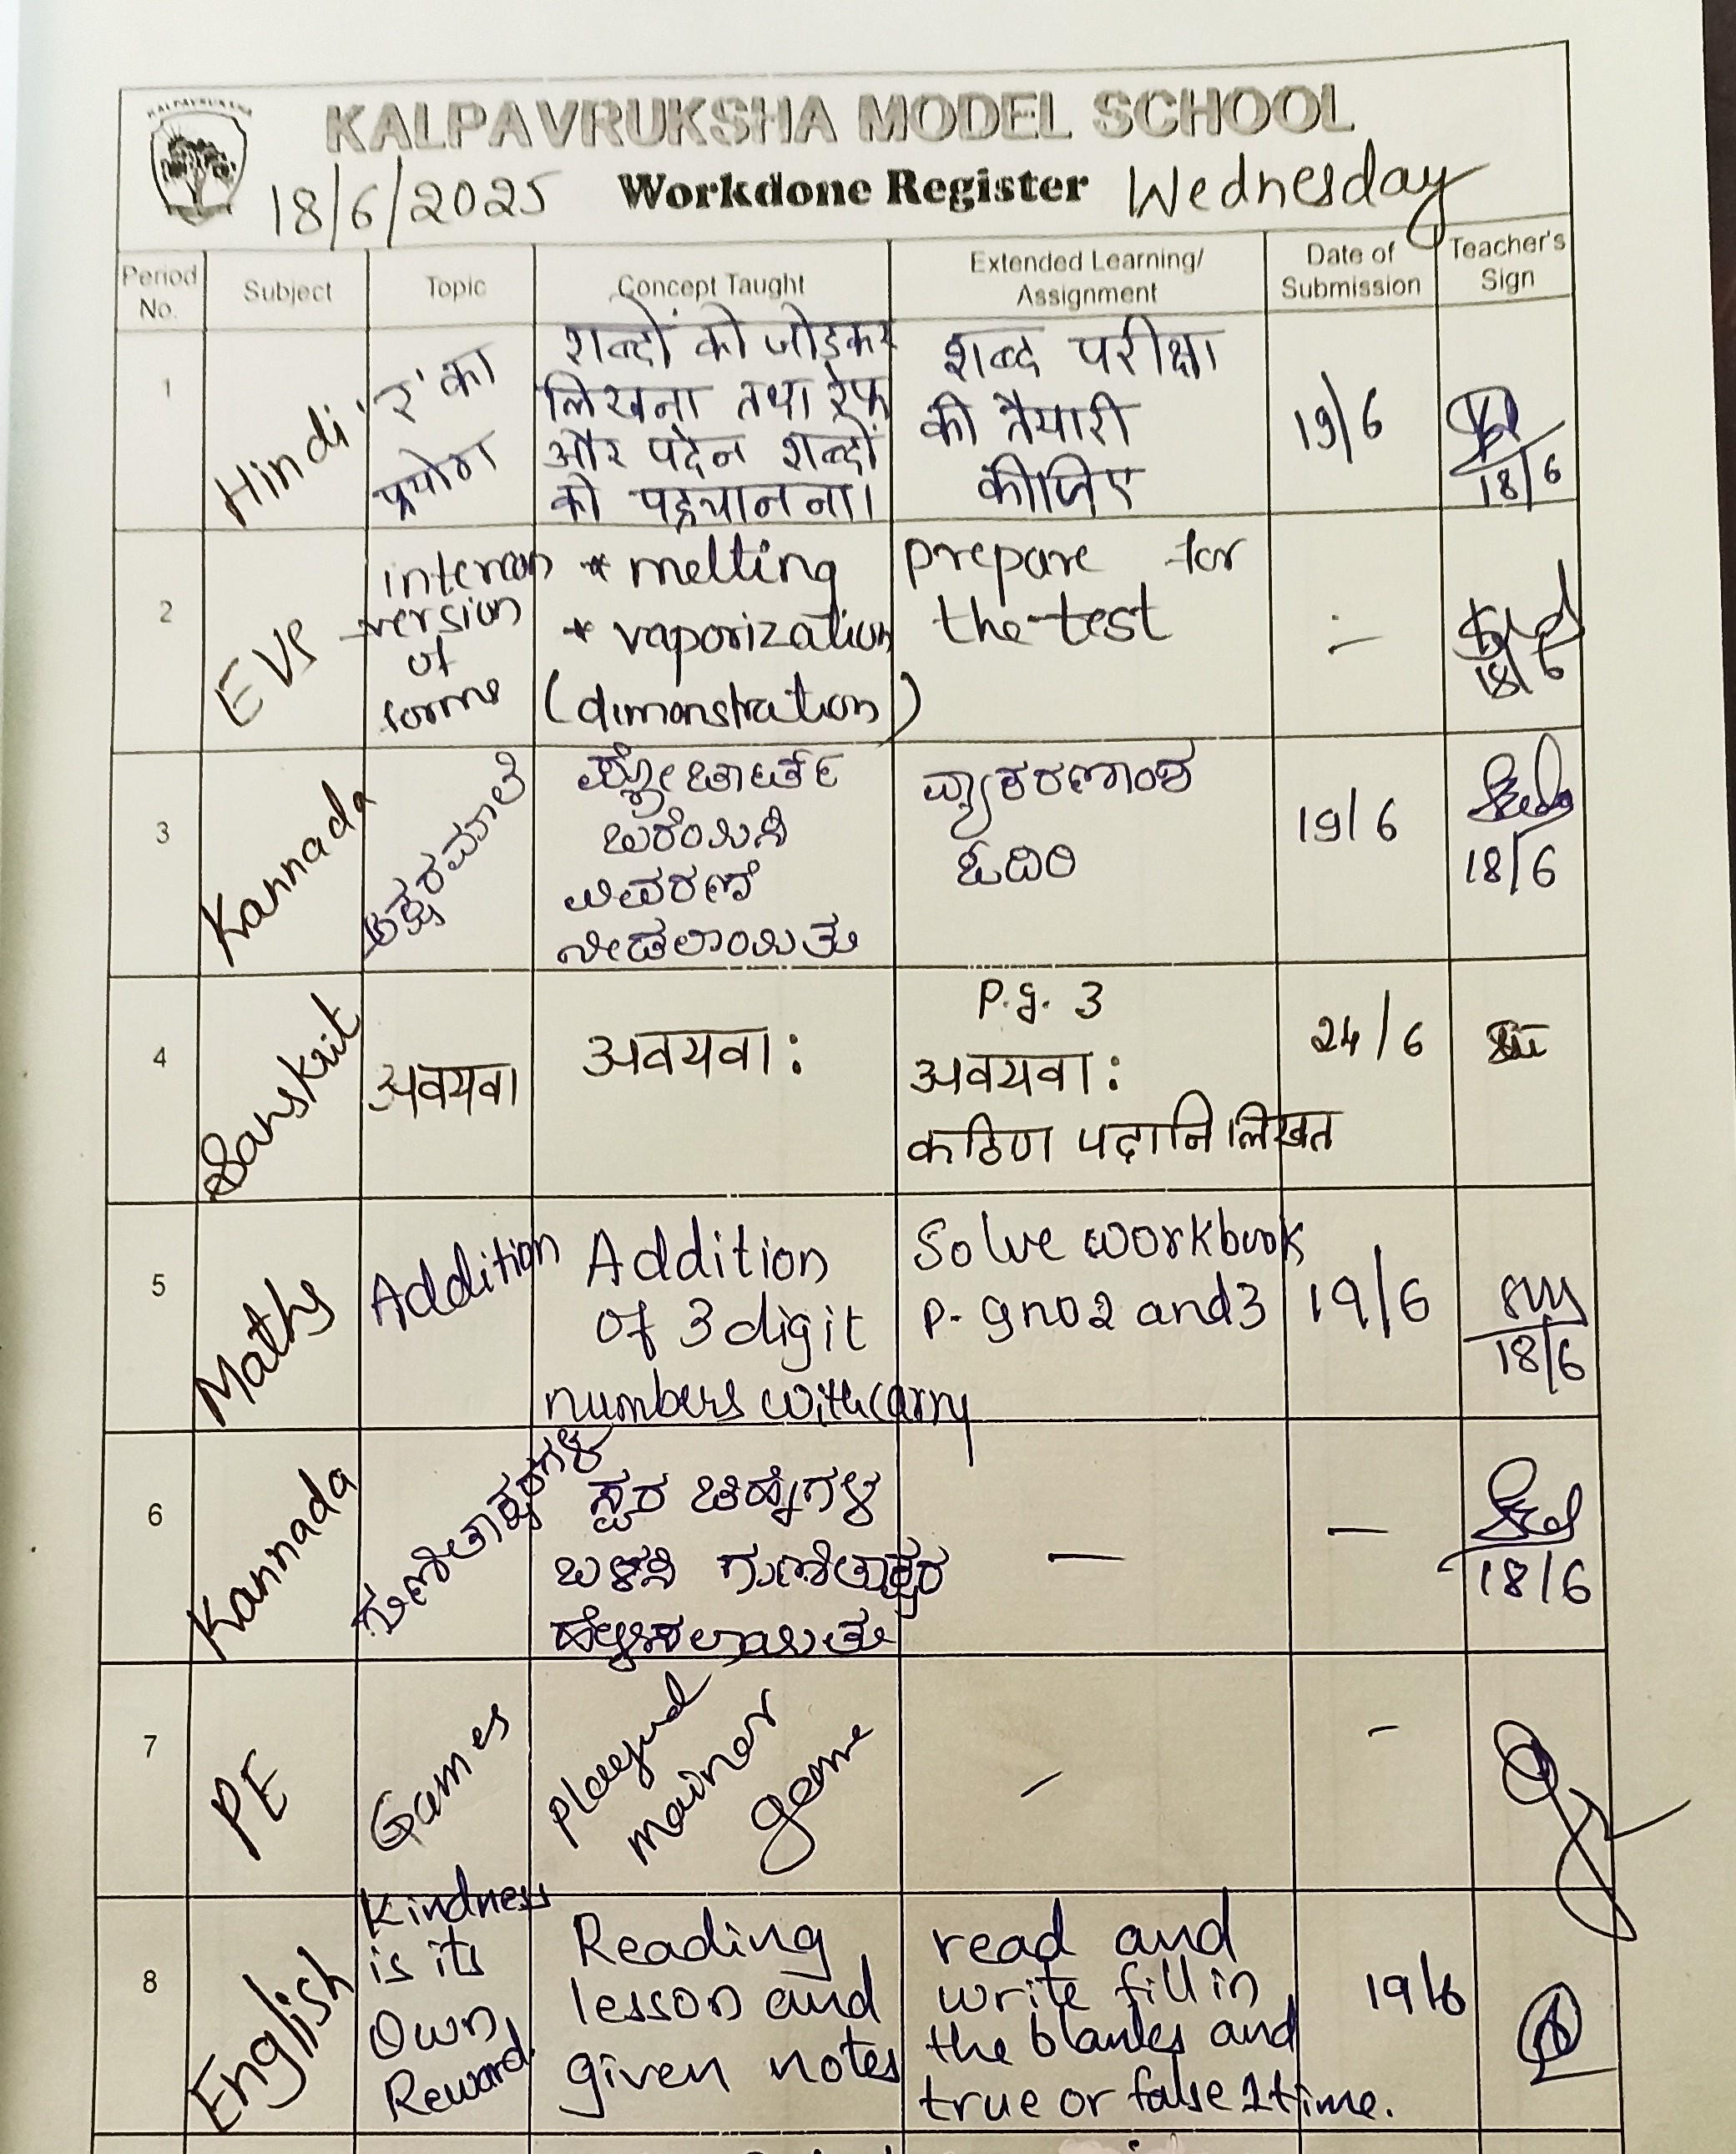 KALPAVRUKSHA
KALPAVRUKSHA MODEL SCHOOL
18/6/2025 Workdone Register Wednesday
Period No. Subject Topic Concept Taught Extended Learning/ Assignment Date of Submission Teacher's Sign
1 Hindi
'र' का
प्रयोग
शब्दों को जोड़कर
लिखना तथा रेफ
और पदेन शब्दों
को पहचानना।
शब्द परीक्षा
की तैयारी
कीजिए
19/6
18/6
2 EVS
version
of
forms
* melting
* vaporization
(dimonstration)
prepare for
the test
-
18/6
3 Kannada
ಅಕ್ಷರಮಾಲೆ
ಫ್ಲೋಚಾರ್ಟ್
ಬರೆಯಿಸಿ
ವಿವರಣೆ
ನೀಡಲಾಯಿತು
ವ್ಯಾಕರಣಾಂಶ
ಓದಿರಿ
19/6
18/6
4 Sanskrit
अवयवा
अवयवा:
P.g. 3
अवयवा:
कठिण पदानि लिखत
24/6
5 Maths
Addition
Addition
of 3 digit
numbers with carry
Solve workbook
P. gno 2 and 3
19/6
18/6
6 Kannada
ಗುಣಿತಾಕ್ಷರಗಳ
ಸ್ವರ ಚಿಹ್ನೆಗಳ
ಬಳಸಿ ಗುಣಿತಾಕ್ಷರ
—
—
18/6
7 PE
Games
Played
game
-
-
8 English
Kindness
is its
Own
Reward.
Reading
lesson and
given notes
read and
write fill in
the blanks and
true or false 1 time.
19/6